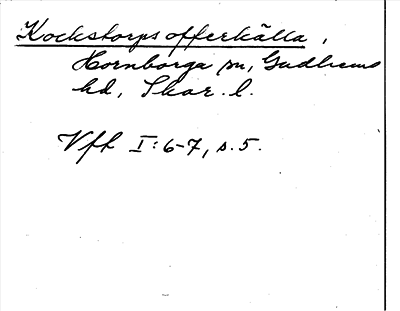 Kockstorps offerkälla,
Hornborga sn, Gudhems
hd, Skar. l.
Vfk I:6-7, s. 5.